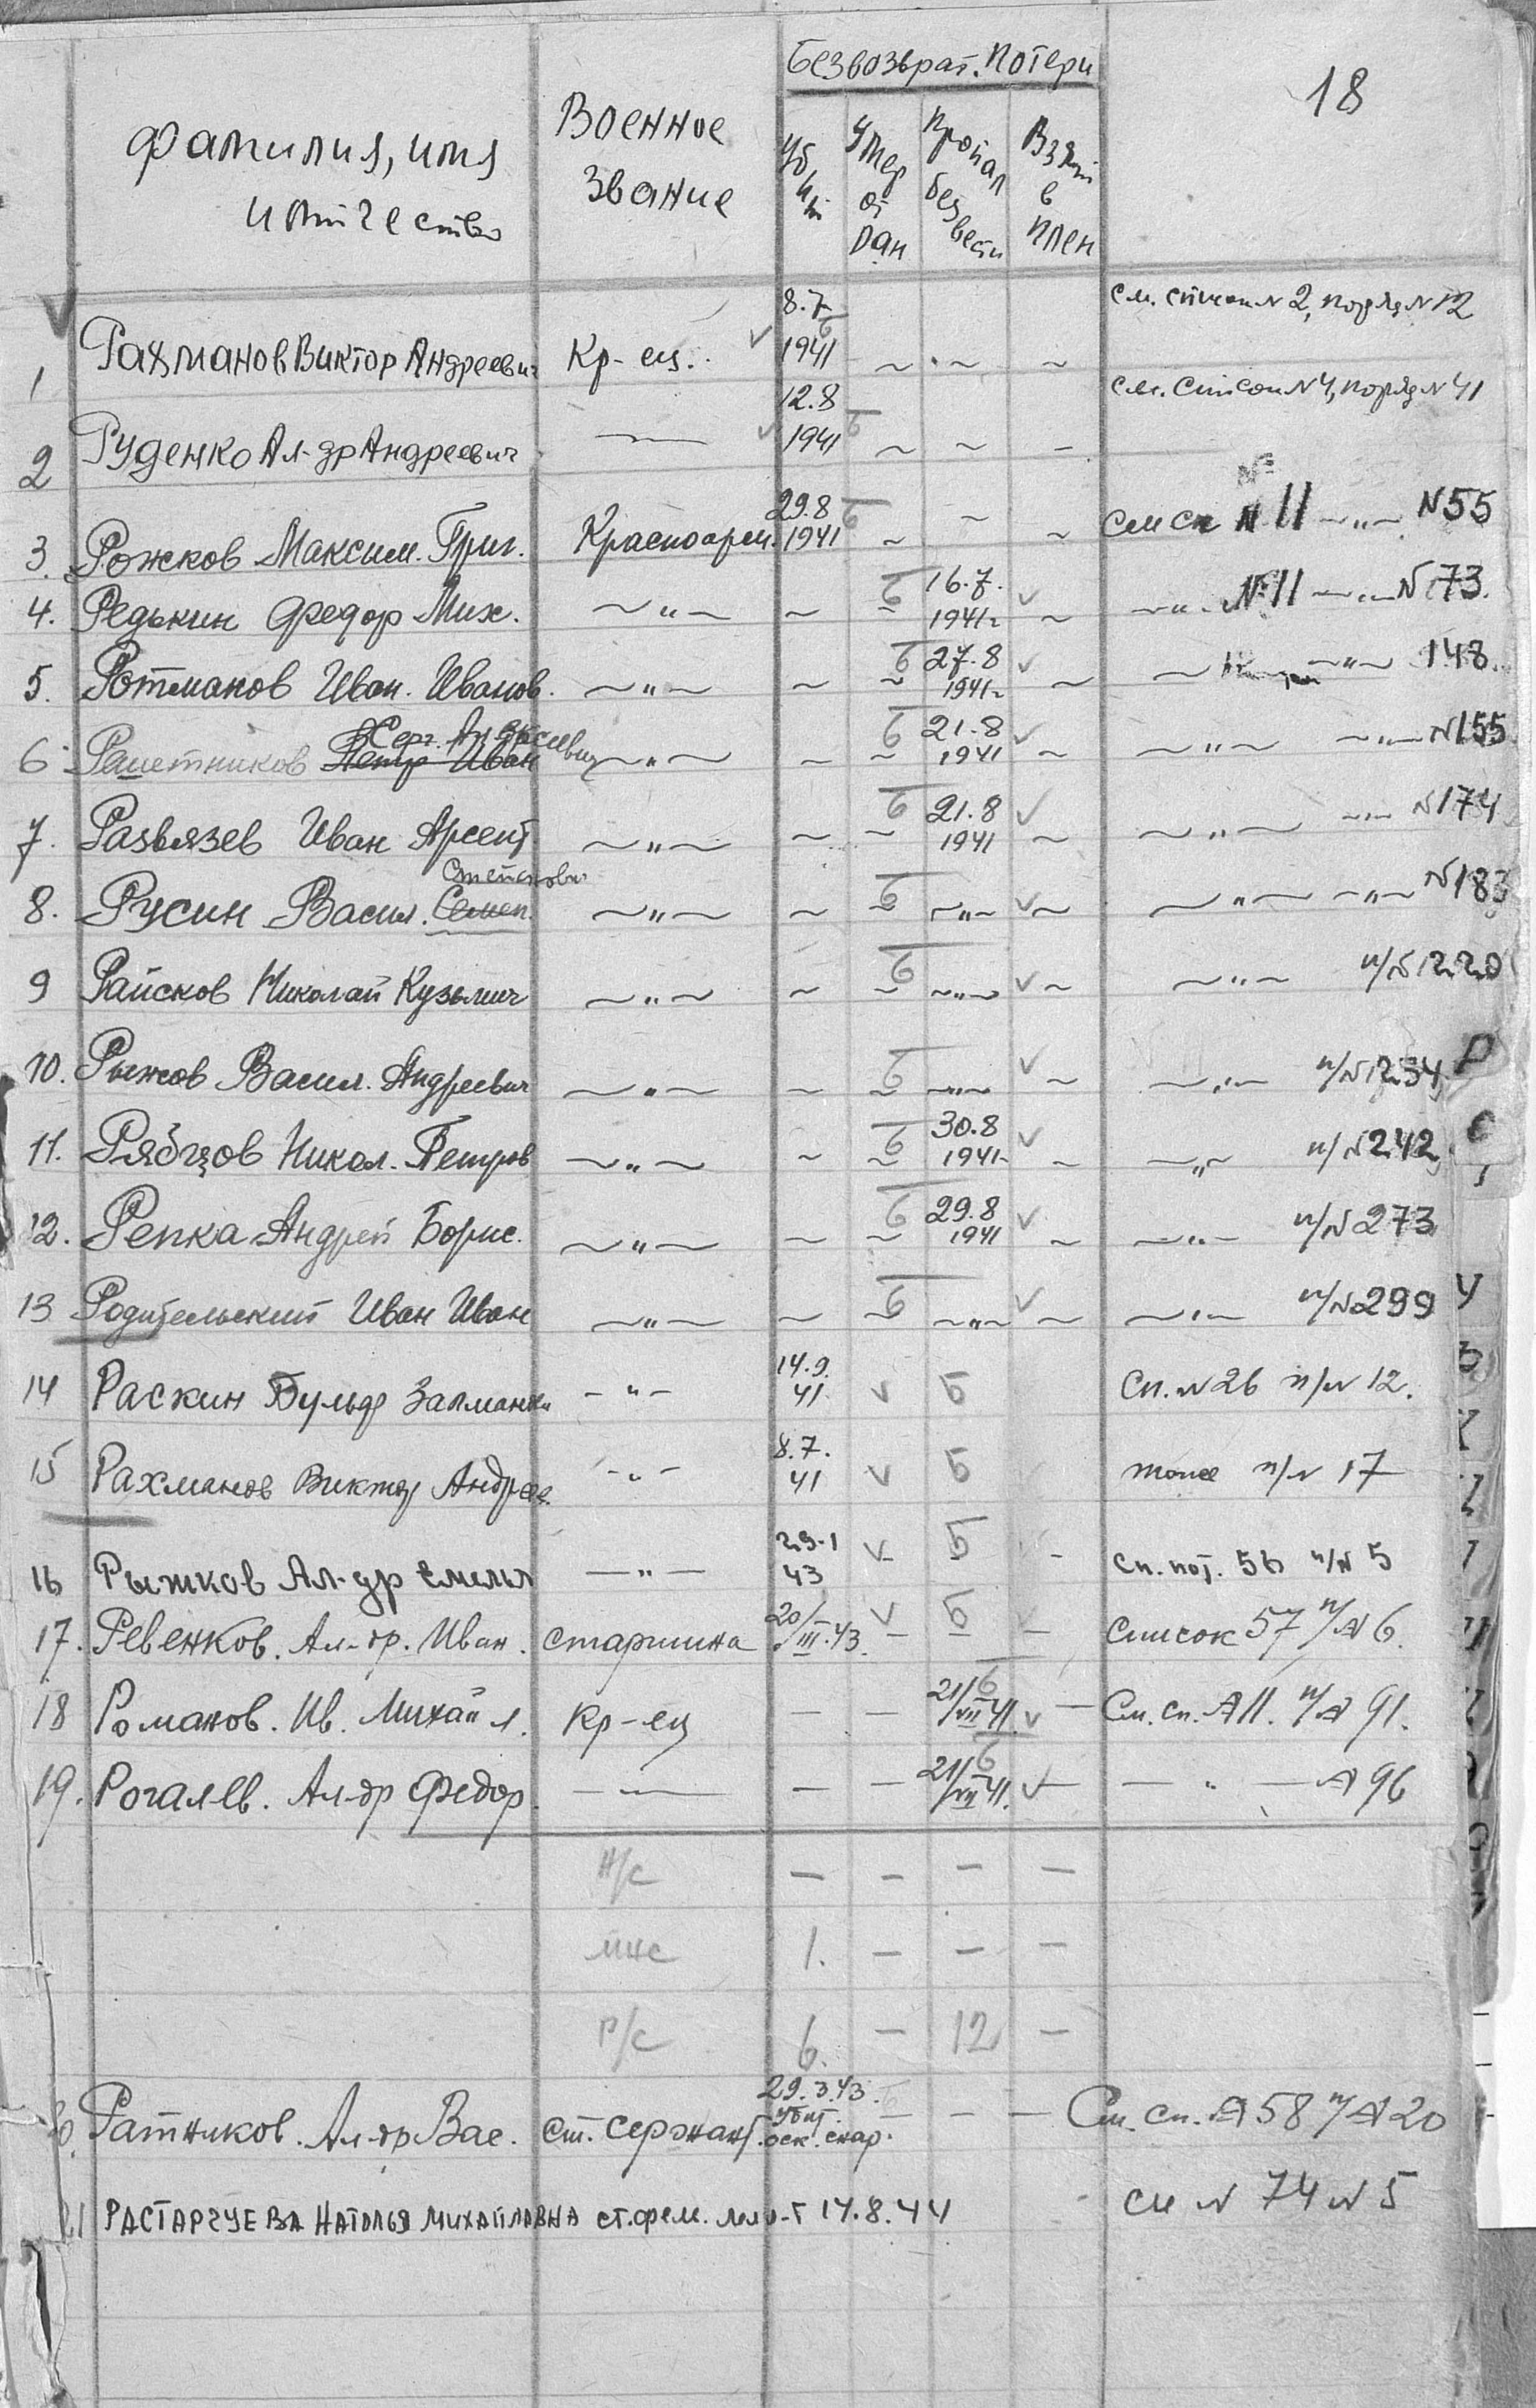 18
Безвозврат. потери
Фамилия, имя и отчество
Военное звание
Убит
Умер от ран
Пропал без вести
Взят в плен
1 Рахманов Виктор Андреевич Кр-ец. 8.7 1941 ~ ~ ~ см. список N 2, поряд N 12
2 Руденко Ал-др Андреевич — 12.8 1941 Б ~ ~ - см. список N 4, поряд N 41
3. Рожков Максим. Григ. Красноарм. 29.8 1941 Б ~ ~ ~ см сп N 11 —"— N 55
4. Редькин Федор Мих. ~"~ ~ ~ Б 16.7. 1941г ~ —"— № 11 —"— N 73.
5. Ротманов Иван. Иванов. ~"~ ~ ~ Б 27.8 1941г ~ ~"~ 148.
6 Решетников Петр Иван Серг. Андреевич ~"~ ~ ~ Б 21.8 1941 ~ ~"~ ~"~ N 155
7. Развязев Иван Арсент. ~"~ ~ ~ Б 21.8 1941 ~ ~"~ ~"~ N 174
8. Русин Васил. Семен. Степанович ~"~ ~ ~ Б ~"~ ~ ~"~ ~"~ N 183
9 Райсков Николай Кузьмич ~"~ ~ ~ Б ~"~ ~ ~"~ п/N 220
10. Рыжов Васил. Андреевич ~"~ ~ ~ Б ~"~ ~ ~"~ п/N 234
11. Рябцов Никол. Петров ~"~ ~ ~ Б 30.8 1941 ~ ~"~ п/N 242
12. Репка Андрей Борис. ~"~ ~ ~ Б 29.8 1941 ~ ~"~ п/N 273
13 Родительский Иван Иван ~"~ ~ ~ Б ~"~ ~ ~"~ п/N 299
14 Раскин Бульф -"- 14.9. 41 Б Сп. N 26 п/N 12.
15 Рахманов Виктор Андрее. -"- 8.7. 41 Б тоже п/N 17
16 Рыжков Ал-др Емельл —"— 29.1 43 Б - Сп. пот. 56 п/N 5
17. Ревенков. Ал-др. Иван. старшина 20/III.43. - Б - Список 57 п/N 6.
18 Романов. Ив. Михайл. Кр-ец — — Б 21/VII 41. — См. сп. N 11. п/N 91.
19. Рогалев. Ал-др Федор. —"— — — Б 21/VII 41. — — " — N 96
Н/с — — — —
мнс 1. — — —
Р/с 6. — 12 —
20. Ратников. Ал-др Вас. ст. сержант. 29.3.43. убит. оск. снар. — — — См. сп. N 58 п/N 20
21 РАСТАРГУЕВА НАТОЛЬЯ МИХАЙЛОВНА ст. фел. 14.8.44 сп N 74 N 5